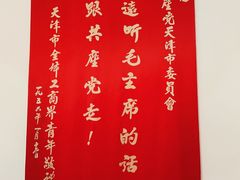 產党天津市委員會
遠听毛主席的話
跟共產党走！
天津市全体工商界青年敬
一九五六年一月